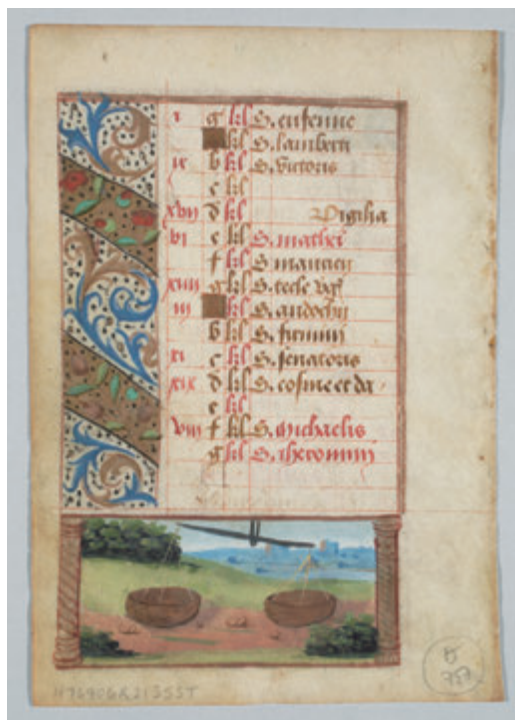 g kl S. eufemie
kl S. lamberti
ix b kl S. victoris
c kl
xvii d kl Vigilia
vi e kl S. mathei
f kl S. mauricii
xiiii g kl S. tecle
iii kl S. andochii
b kl S. firmini
xi c kl S. senatoris
xix d kl S. cosme et da
e kl
viii f kl S. michaelis
g kl S. iheronimi